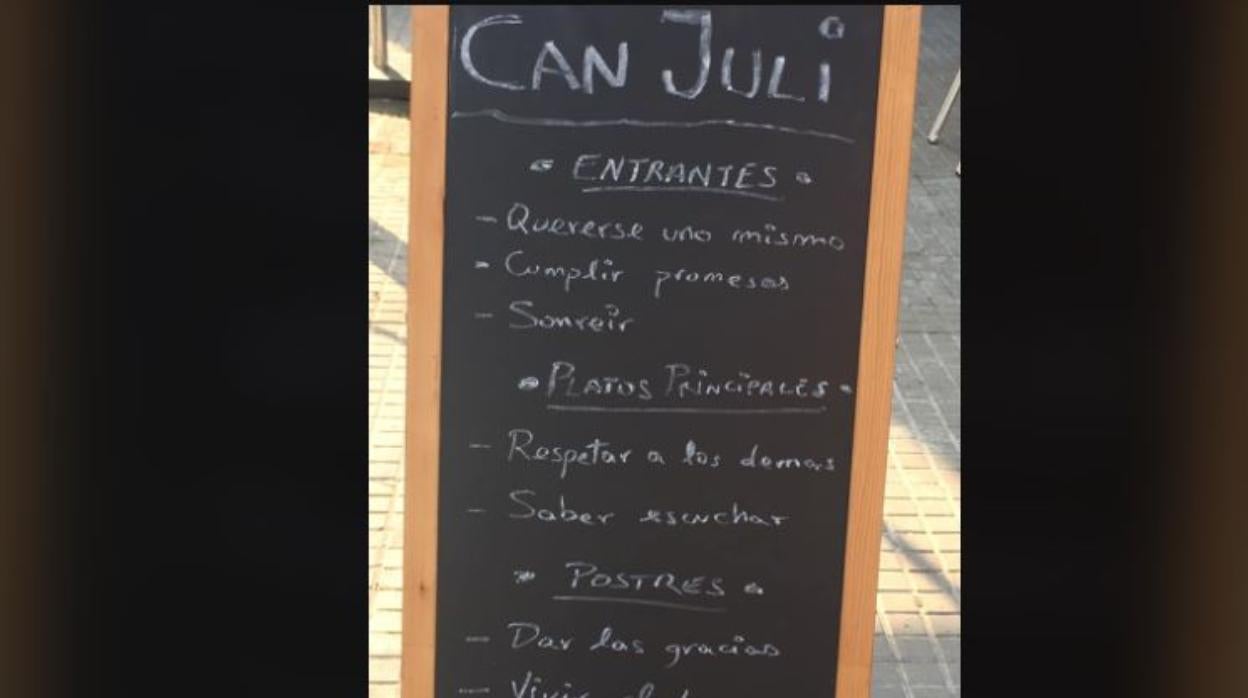 CAN JULI
ENTRANTES
- Quererse uno mismo
- Cumplir promesas
- Sonreir
PLATOS PRINCIPALES
- Respetar a los demas
- Saber escuchar
POSTRES
- Dar las gracias
- Vivir